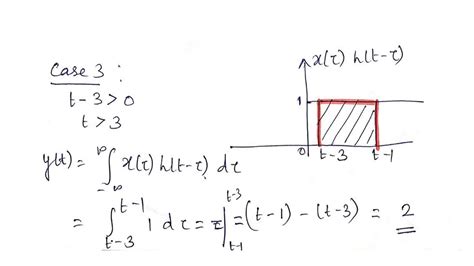 Case 3 :
t-3>0
t>3
x(τ) h(t-τ)
1
0 t-3 t-1
y(t) = ∫_{-∞}^{∞} x(τ) h(t-τ) dτ
= ∫_{t-3}^{t-1} 1 dτ = τ|_{t-1}^{t-3} = (t-1) - (t-3) = 2